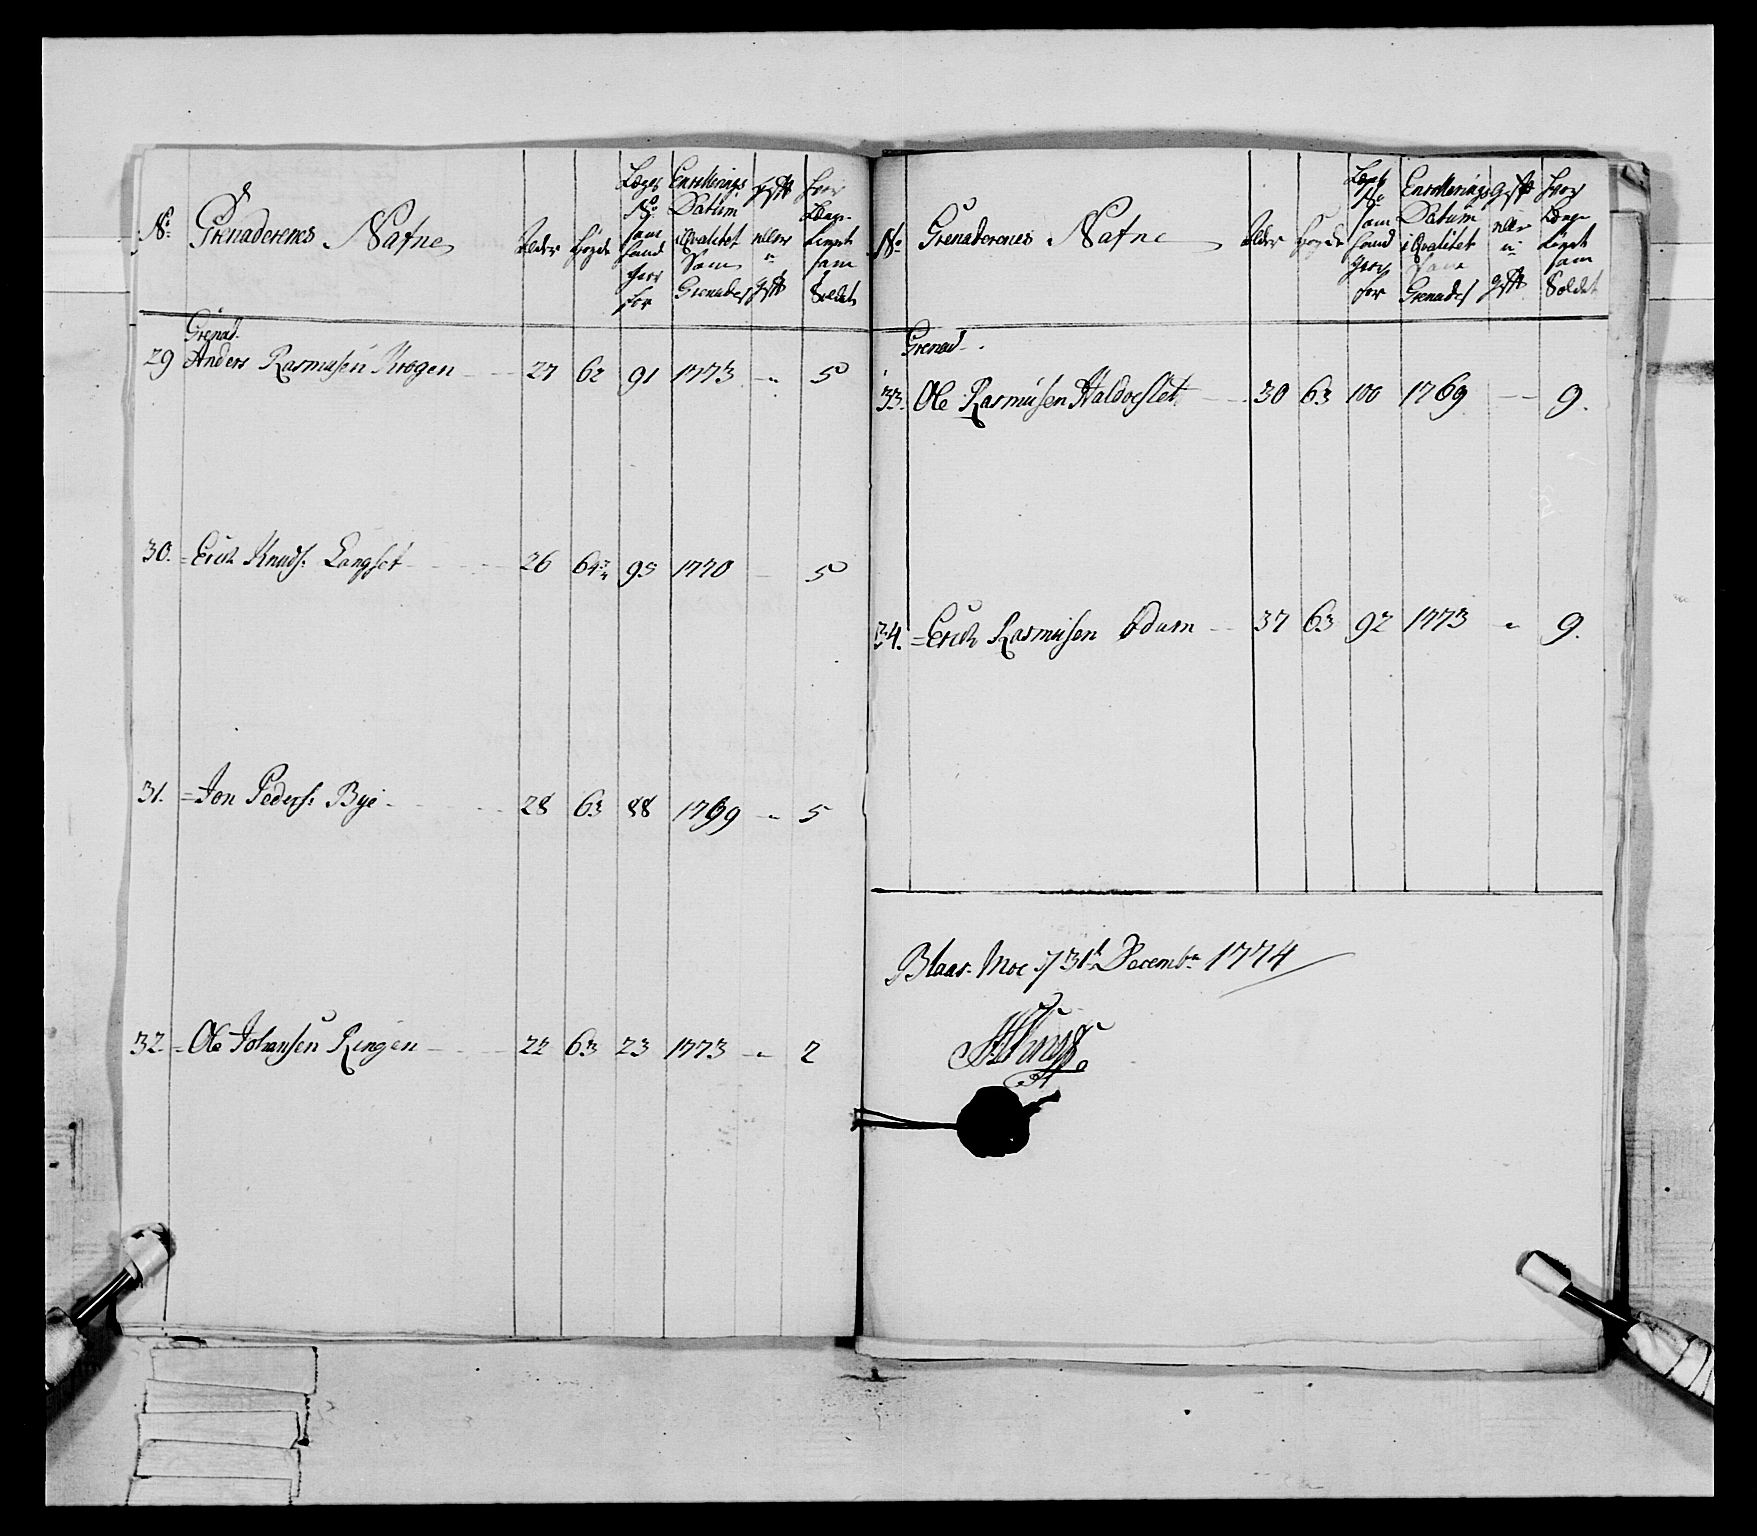 No. Grenaderenes Nafne Alder Høyde Læges No. som hand staar for Enrollerings Datum i Qvalitet Som Grenader gift eller u gift hvor Længe tient som Soldat
Grenad.
29 Anders Rasmusen Krogen 27 62 91 1773 5
30. Erich Knuds. Langset 26 64 95 1770 5
31. Jon Peders. Bye 28 63 88 1769 5
32. Ole Johansen Ringen 22 63 23 1773 2
No. Grenaderenes Nafne Alder Høyde Lægs No. som hand for Enrollerings Datum i Qvalitet Som Grenader gift eller u gift hvor Længe tient som Soldat
Grenad.
33. Ole Rasmusen Haldorslet 30 63 100 1769 9.
34. Erich Rasmusen Odum 37 63 92 1773 9.
Blaar-Moe 31t Decembr 1774